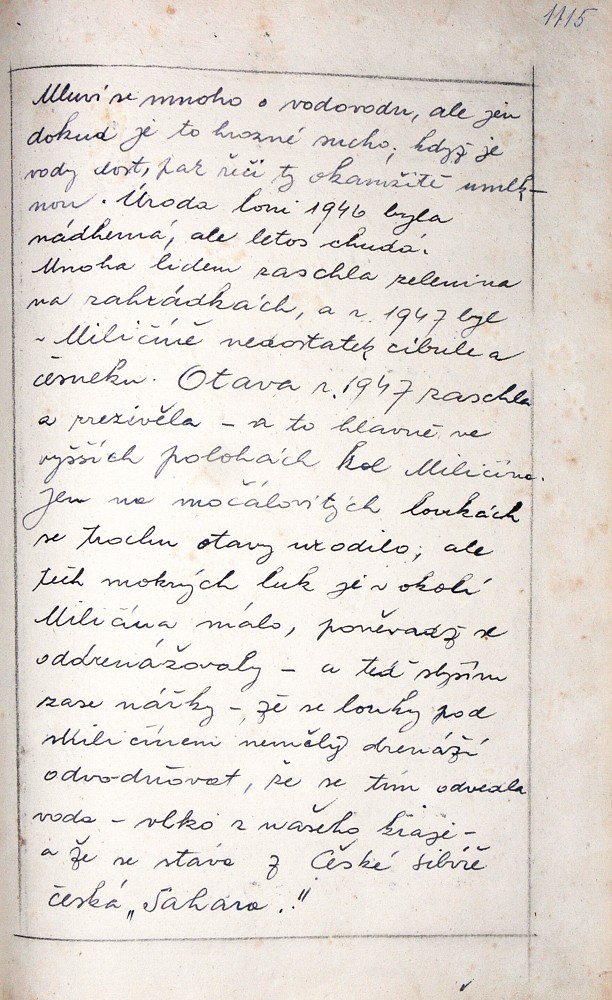 1115
Mluví se mnoho o vodovodu, ale jen
dokud je to hrozné sucho; když je
vody dost, pak řeči ty okamžitě umlk-
nou. Úroda loni 1946 byla
nádherná, ale letos chudá.
Mnoha lidem zaschla zelenina
na zahrádkách, a r. 1947 byl
v Miličíně nedostatek cibule a
česneku. Otava r. 1947 zaschla
a zrezivěla - a to hlavně ve
vyšších polohách kol Miličína.
Jen na močálovitých loukách
se trochu otavy urodilo, ale
těch mokrých luk je v okolí
Miličína málo, poněvadž se
oddrenážovaly - a teď slyším
zase nářky - že se louky pod
Miličínem neměly drenáží
odvodňovat, že se tím odvedla
voda - vlhko z našeho kraje -
a že se stává z České Sibiře
česká „Sahara."